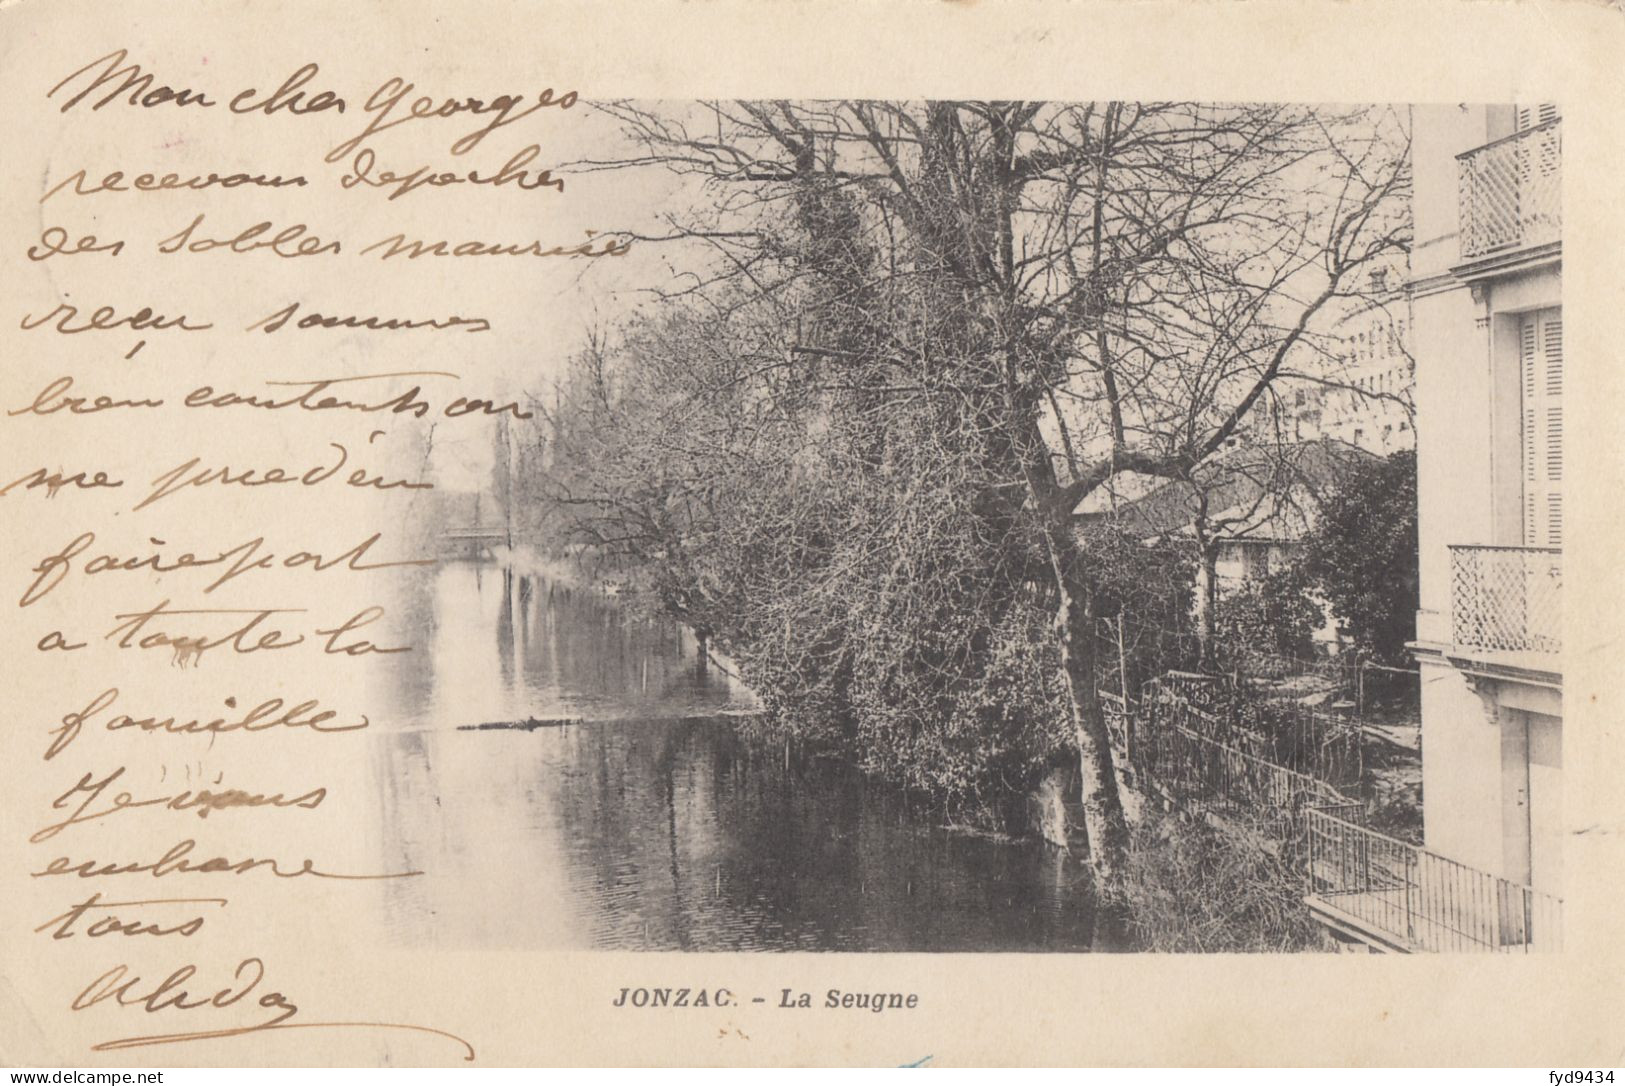 Mon cher Georges
recevons depecher
des Sables maurice
reçu sommes
bien contents on
me pried'en
faire part
a toute la
famille
Je vous
embrasse
tous
JONZAC. - La Seugne
fyd9434